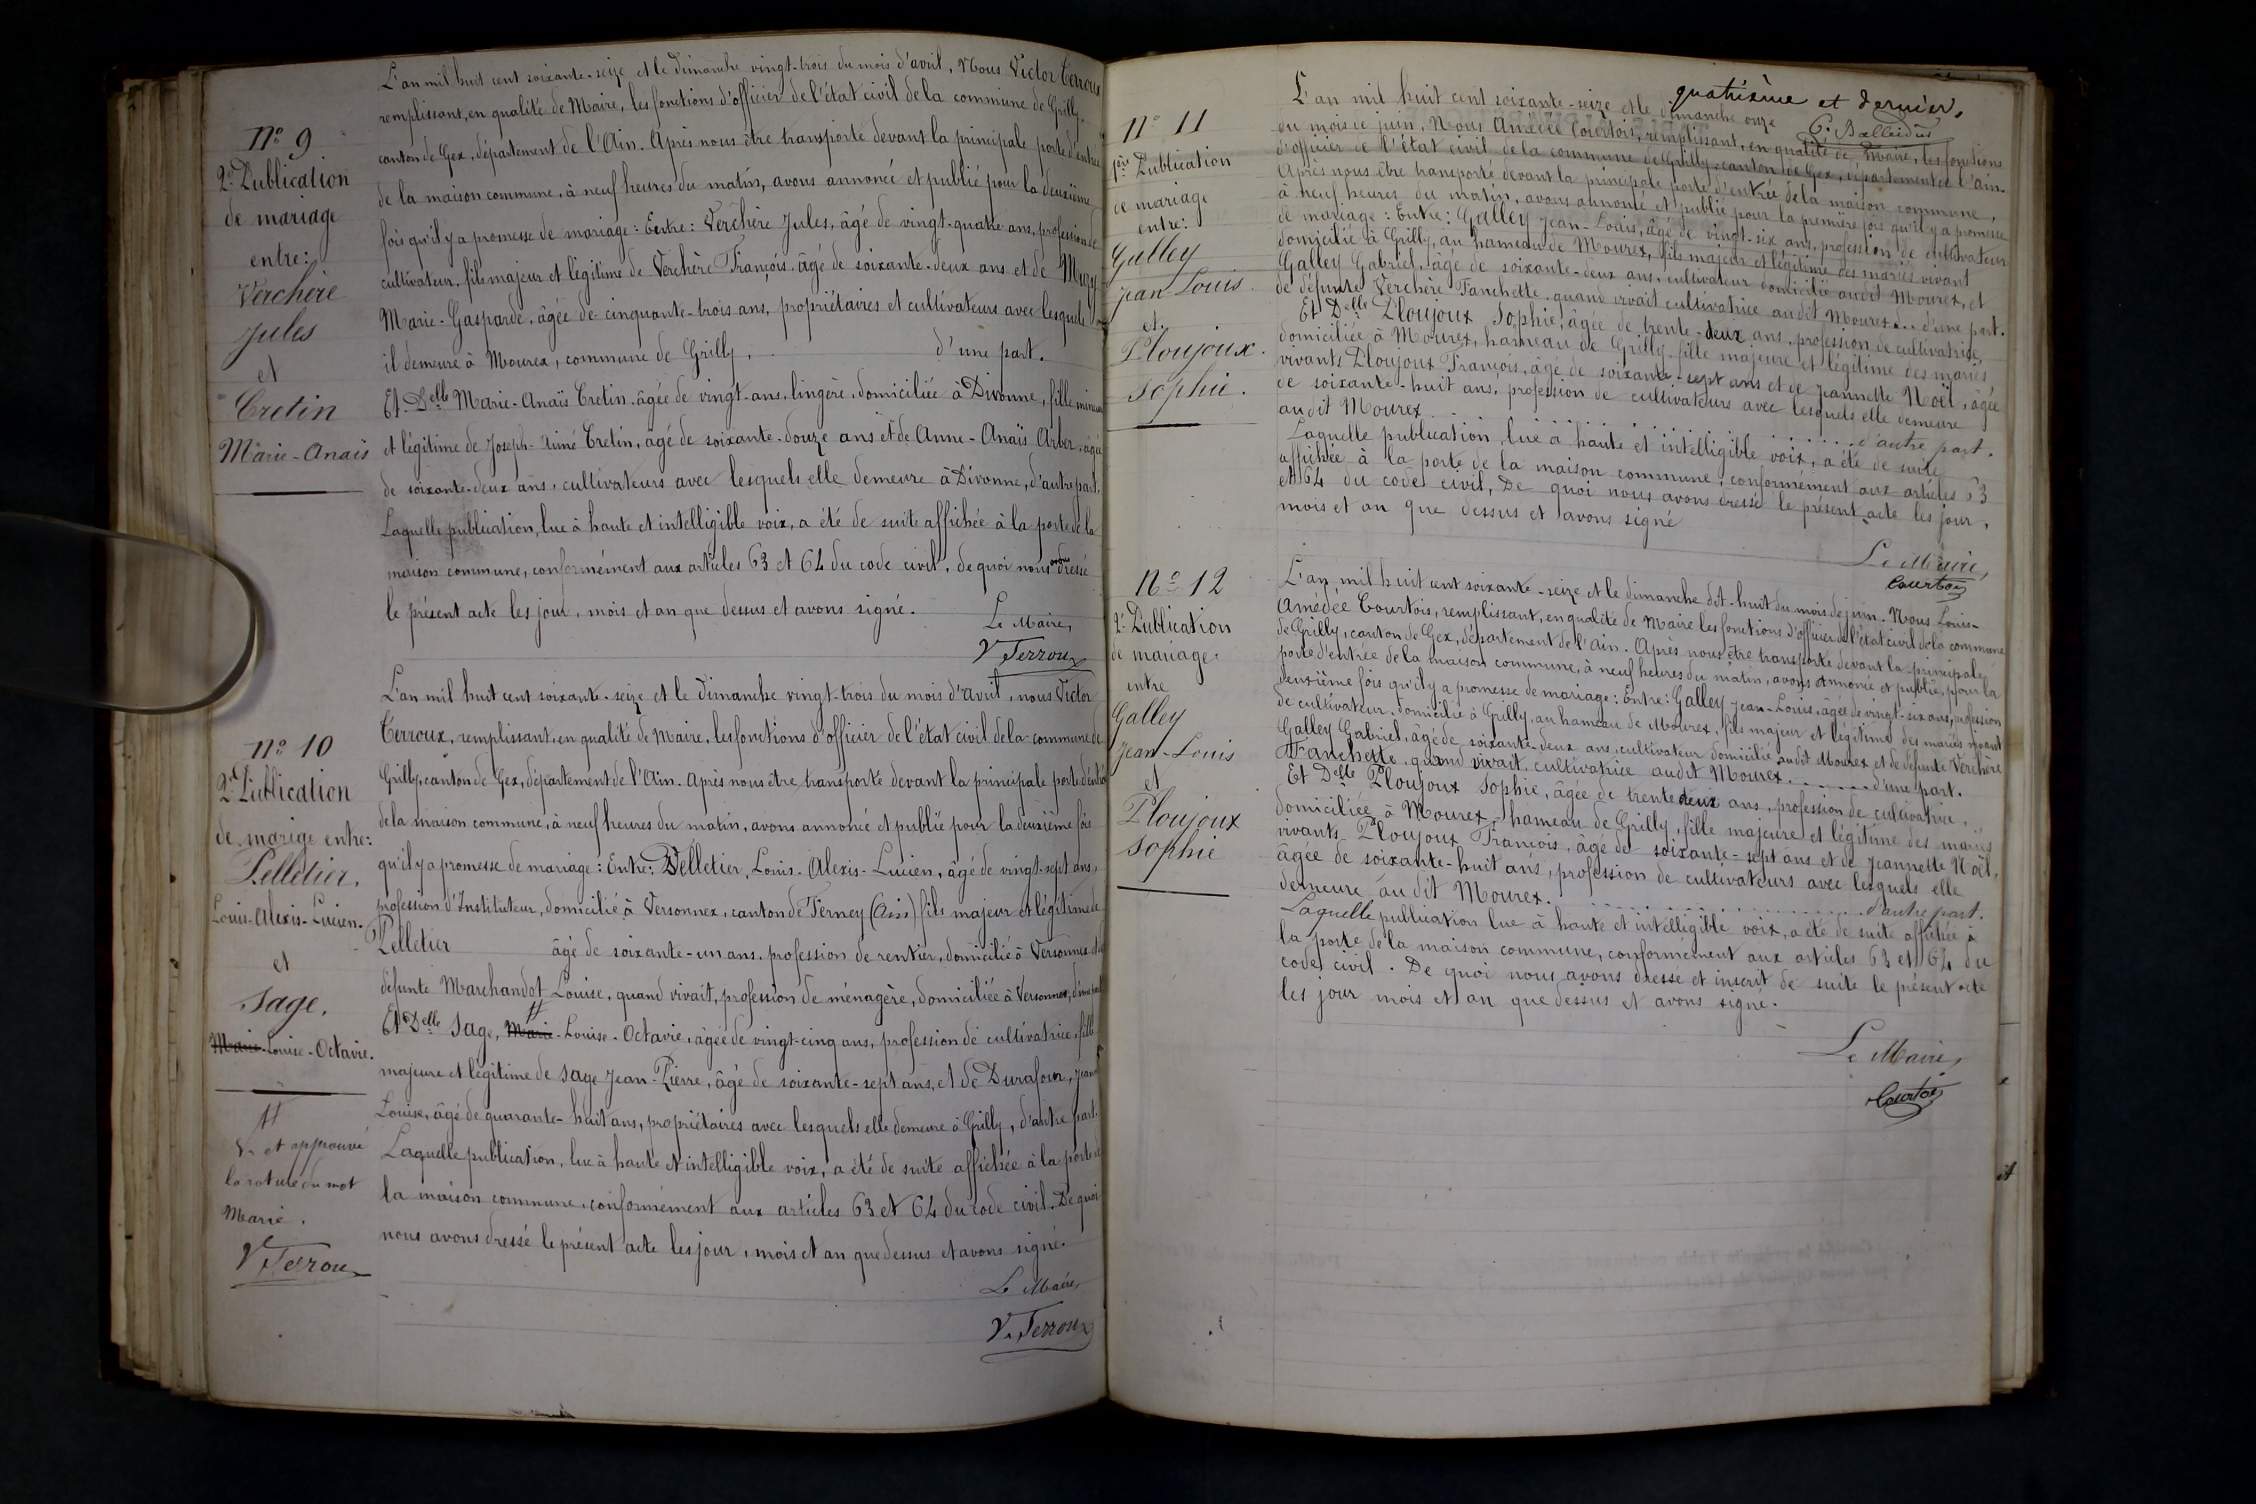 N° 9
2e Publication
de mariage
entre:
Verchère
Jules
et
Cretin
Marie-Anaïs
L'an mil huit cent soixante-seize et le dimanche vingt-trois du mois d'avril, Nous Victor Terroux
remplissant, en qualité de Maire, les fonctions d'officier de l'état civil de la commune de Grilly,
canton de Gex, département de l'Ain. Après nous être transporté devant la principale porte d'entrée
de la maison commune, à neuf heures du matin, avons annoncé et publié pour la deuxième
fois qu'il y a promesse de mariage: Entre: Verchère Jules, âgé de vingt-quatre ans, profession de
cultivateur, fils majeur et légitime de Verchère François, âgé de soixante-deux ans et de Mury
Marie-Gasparde, âgée de cinquante-trois ans, propriétaires et cultivateurs avec lesquels
il demeure à Mourex, commune de Grilly, d'une part.
Et Delle Marie-Anaïs Cretin, âgée de vingt-ans, lingère, domiciliée à Divonne, fille mineure
et légitime de Joseph-Aimé Cretin, âgé de soixante-douze ans et de Anne-Anaïs Arber, âgée
de soixante-deux ans, cultivateurs avec lesquels elle demeure à Divonne, d'autre part.
Laquelle publication, lue à haute et intelligible voix, a été de suite affichée à la porte de la
maison commune, conformément aux articles 63 et 64 du code civil, de quoi nous avons dressé
le présent acte les jour, mois et an que dessus et avons signé.
Le Maire,
V Terroux
N° 10
2e Publication
de marige entre:
Pelletier,
Louis-Alexis-Lucien.
et
Sage,
Marie-Louise-Octavie.
Vu et approuvé
la rature du mot
Marie.
V. Terroux
L'an mil huit cent soixante-seize et le dimanche vingt-trois du mois d'avril, nous Victor
Terroux, remplissant, en qualité de Maire, les fonctions d'officier de l'état civil de la commune de
Grilly, canton de Gex, département de l'Ain. Après nous être transporté devant la principale porte d'entrée
de la maison commune, à neuf heures du matin, avons annoncé et publié pour la deuxième fois
qu'il y a promesse de mariage: Entre: Pelletier, Louis-Alexis-Lucien, âgé de vingt-sept ans,
profession d'Instituteur, domicilié à Versonnex, canton de Ferney (Ain) fils majeur et légitime de
Pelletier âgé de soixante-un ans, profession de rentier, domicilié à Versonnex et de
défunte Marchandot Louise, quand vivait, profession de ménagère, domiciliée à Versonnex, d'une part
Et Delle Sage, Marie-Louise-Octavie, âgée de vingt-cinq ans, profession de cultivatrice, fille
majeure et légitime de Sage Jean-Pierre, âgé de soixante-sept ans, et de Durafour, Jeanne
Louise, âgé de quarante-huit ans, propriétaires avec lesquels elle demeure à Grilly, d'autre part.
Laquelle publication, lue à haute et intelligible voix, a été de suite affichée à la porte de
la maison commune, conformément aux articles 63 et 64 du code civil. De quoi
nous avons dressé le présent acte les jour, mois et an que dessus et avons signé.
Le Maire,
V. Terroux
quatrième et dernier,
N° 11
1ère Publication
de mariage
entre:
Galley
Jean Louis
et
Ploujoux.
Sophie.
L'an mil huit cent soixante-seize et le dimanche onze
du mois de juin, Nous Amédée Courtois, remplissant, en qualité de Maire, les fonctions
d'officier de l'état civil de la commune de Grilly, canton de Gex, département de l'Ain.
Après nous être transporté devant la principale porte d'entrée de la maison commune,
à neuf heures du matin, avons annoncé et publié pour la première fois qu'il y a promesse
de mariage: Entre: Galley Jean-Louis, âgé de vingt-six ans, profession de cultivateur
domicilié à Grilly, au hameau de Mourex, fils majeur et légitime des mariés vivant
Galley Gabriel, âgé de soixante-deux ans, cultivateur domicilié audit Mourex, et
de défunte Verchère Fanchette, quand vivait cultivatrice audit Mourex... d'une part.
Et Delle Ploujoux Sophie, âgée de trente-deux ans, profession de cultivatrice,
domiciliée à Mourex, hameau de Grilly, fille majeure et légitime des mariés,
vivants Ploujoux François, âgé de soixante-sept ans et de Jeannette Noël, âgée
de soixante-huit ans, profession de cultivateurs avec lesquels elle demeure
audit Mourex. . . . . . . d'autre part.
Laquelle publication, lue à haute et intelligible voix, a été de suite
affichée à la porte de la maison commune, conformément aux articles 63
et 64 du code civil, De quoi nous avons dressé le présent acte les jour,
mois et an que dessus et avons signé
Le Maire,
Courtois
N° 12
2e Publication
de mariage
entre
Galley
Jean-Louis
et
Ploujoux
Sophie
L'an mil huit cent soixante-seize et le dimanche dix-huit du mois de juin. Nous Louis-
Amédée Courtois, remplissant, en qualité de Maire les fonctions d'officier de l'état civil de la commune
de Grilly, canton de Gex, département de l'Ain. Après nous être transporté devant la principale
porte d'entrée de la maison commune, à neuf heures du matin, avons annoncé et publié, pour la
deuxième fois qu'il y a promesse de mariage: Entre: Galley Jean-Louis, âgé de vingt-six ans, profession
de cultivateur, domicilié à Grilly, au hameau de Mourex, fils majeur et légitime des mariés vivant
Galley Gabriel, âgé de soixante-deux ans, cultivateur domicilié audit Mourex et de défunte Verchère
Fanchette, quand vivait, cultivatrice audit Mourex. . . . . d'une part.
Et Delle Ploujoux Sophie, âgée de trente deux ans, profession de cultivatrice,
domiciliée à Mourex, hameau de Grilly, fille majeure et légitime des mariés
vivants Ploujoux François, âgé de soixante-sept ans et de Jeannette Noël,
âgée de soixante-huit ans, profession de cultivateurs avec lesquels elle
demeure audit Mourex. . . . . . . d'autre part.
Laquelle publication lue à haute et intelligible voix, a été de suite affichée à
la porte de la maison commune, conformément aux articles 63 et 64 du
code civil. De quoi nous avons dressé et inscrit de suite le présent acte
les jour mois et an que dessus et avons signé.
Le Maire,
Courtois